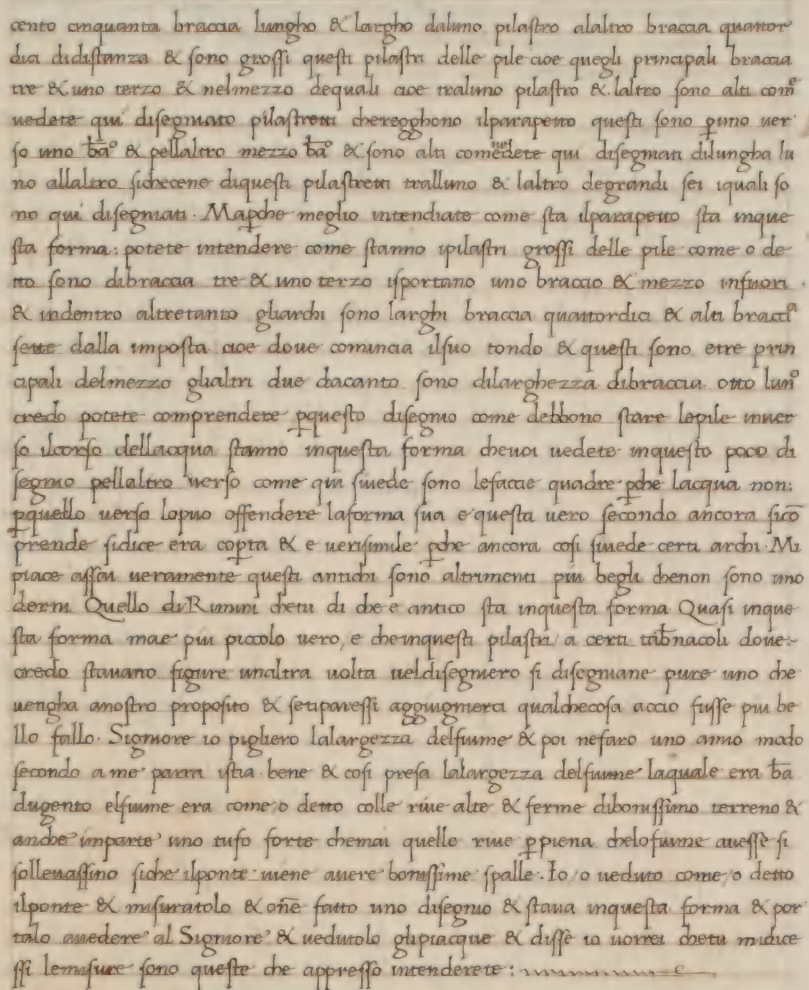 cento cinquanta braccia lungho & largho daluno pilastro alaltro braccia quattor
dici didistanza & sono grossi questi pilastri delle pile cioe quegli principali braccia
tre & uno terzo & nelmezzo dequali cioe traluno pilastro & laltro sono alti comͤ
uedete qui disegniato pilastretti cheregghono ilparapetto questi sono p̱uno uer
so uno b̄aͦ & pellaltro mezzo b̄aͦ & sono alti comeuedete qui disegniati dilungha lu
no allaltro sichecene diquesti pilastretti tralluno & laltro degrandi sei iquali so
no qui disegniati · Map̱che meglio intendiate come sta ilparapetto sta inque
sta forma: potete intendere come stanno ipilastri grossi delle pile come o de
tto sono dibraccia tre & uno terzo isportano uno braccio & mezzo infuori ·
& indentro altretanto gliarchi sono larghi braccia quattordici & alti bracciͣ
sette dalla imposta cioe doue comincia ilsuo tondo & questi sono etre prin
cipali delmezzo glialtri due dacanto sono dilarghezza dibraccia otto lunͦ
credo potete comprendere p̱questo disegnio come debbono stare lepile inuer
so ilcorso dellacqua stanno inquesta forma cheuoi uedete inquesto poco di
segnio pellaltro uerso come qui siuede sono lefaccie quadre p̱che lacqua non:
p̱quello uerso lopuo offendere laforma sua e questa uero secondo ancora sicō
prende sidice era cop̱ta & e uerisimile p̱che ancora cosi siuede certi archi · Mi
piace assai ueramente questi antichi sono altrimenti piu begli chenon sono imo
derni Quello di Rimini chetu di che e antico sta inquesta forma Quasi inque
sta forma mae piu piccolo uero, e cheinquesti pilastri a certi tab̄nacoli doue
credo stauano figure unaltra uolta ueldisegniero si disegniane pure uno che
uengha anostro proposito & setiparessi aggiugnierci qualchecosa accio fusse piu be
llo fallo · Signiore io pigliero lalargezza delfiume & poi nefaro uno amio modo
secondo a me parra istia bene & cosi presa lalargezza delfiume laquale era b̄a
dugento elfiume era come o detto colle riue alte & ferme dibonissimo terreno &
anche imparte uno tufo forte chemai quelle riue p̱piena chelofiume auesse si
solleuassino siche ilponte uiene auere bonissime spalle · Io o ueduto come o detto
ilponte & misuratolo & onē fatto uno disegnio & staua inquesta forma & por
talo auedere al Signiore & uedutolo glipiacque & disse io uorrei chetu midice
ssi lemisure sono queste che appresso intenderete: